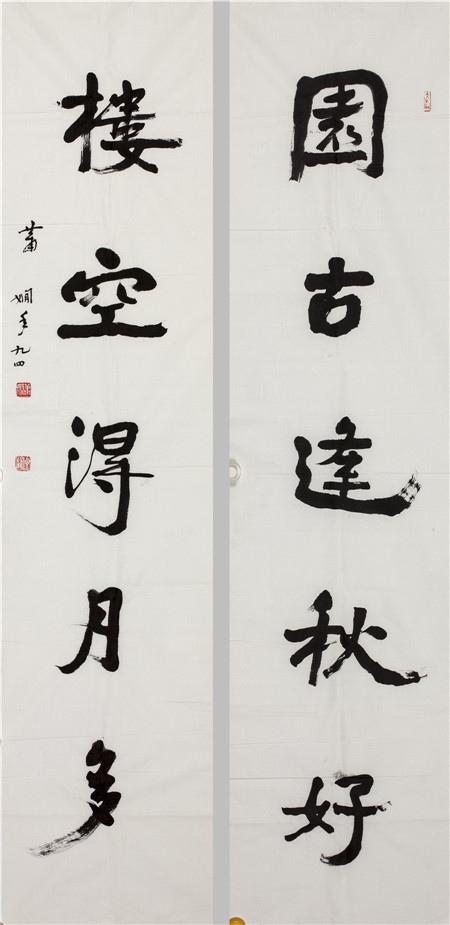 園古逢秋好
樓空得月多
蕭嫻年九四